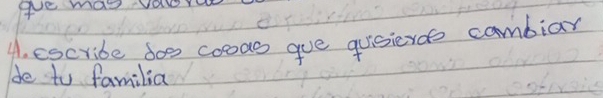 que mas valoras
4. escribe dos cosas que quisieras cambiar
de tu familia